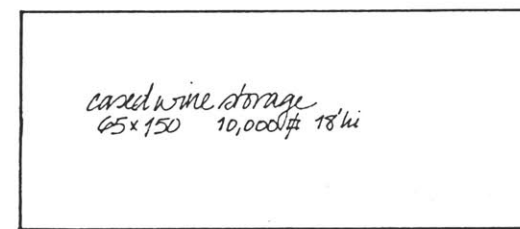 cased wine storage
65x150 10,000⌗ 18'hi